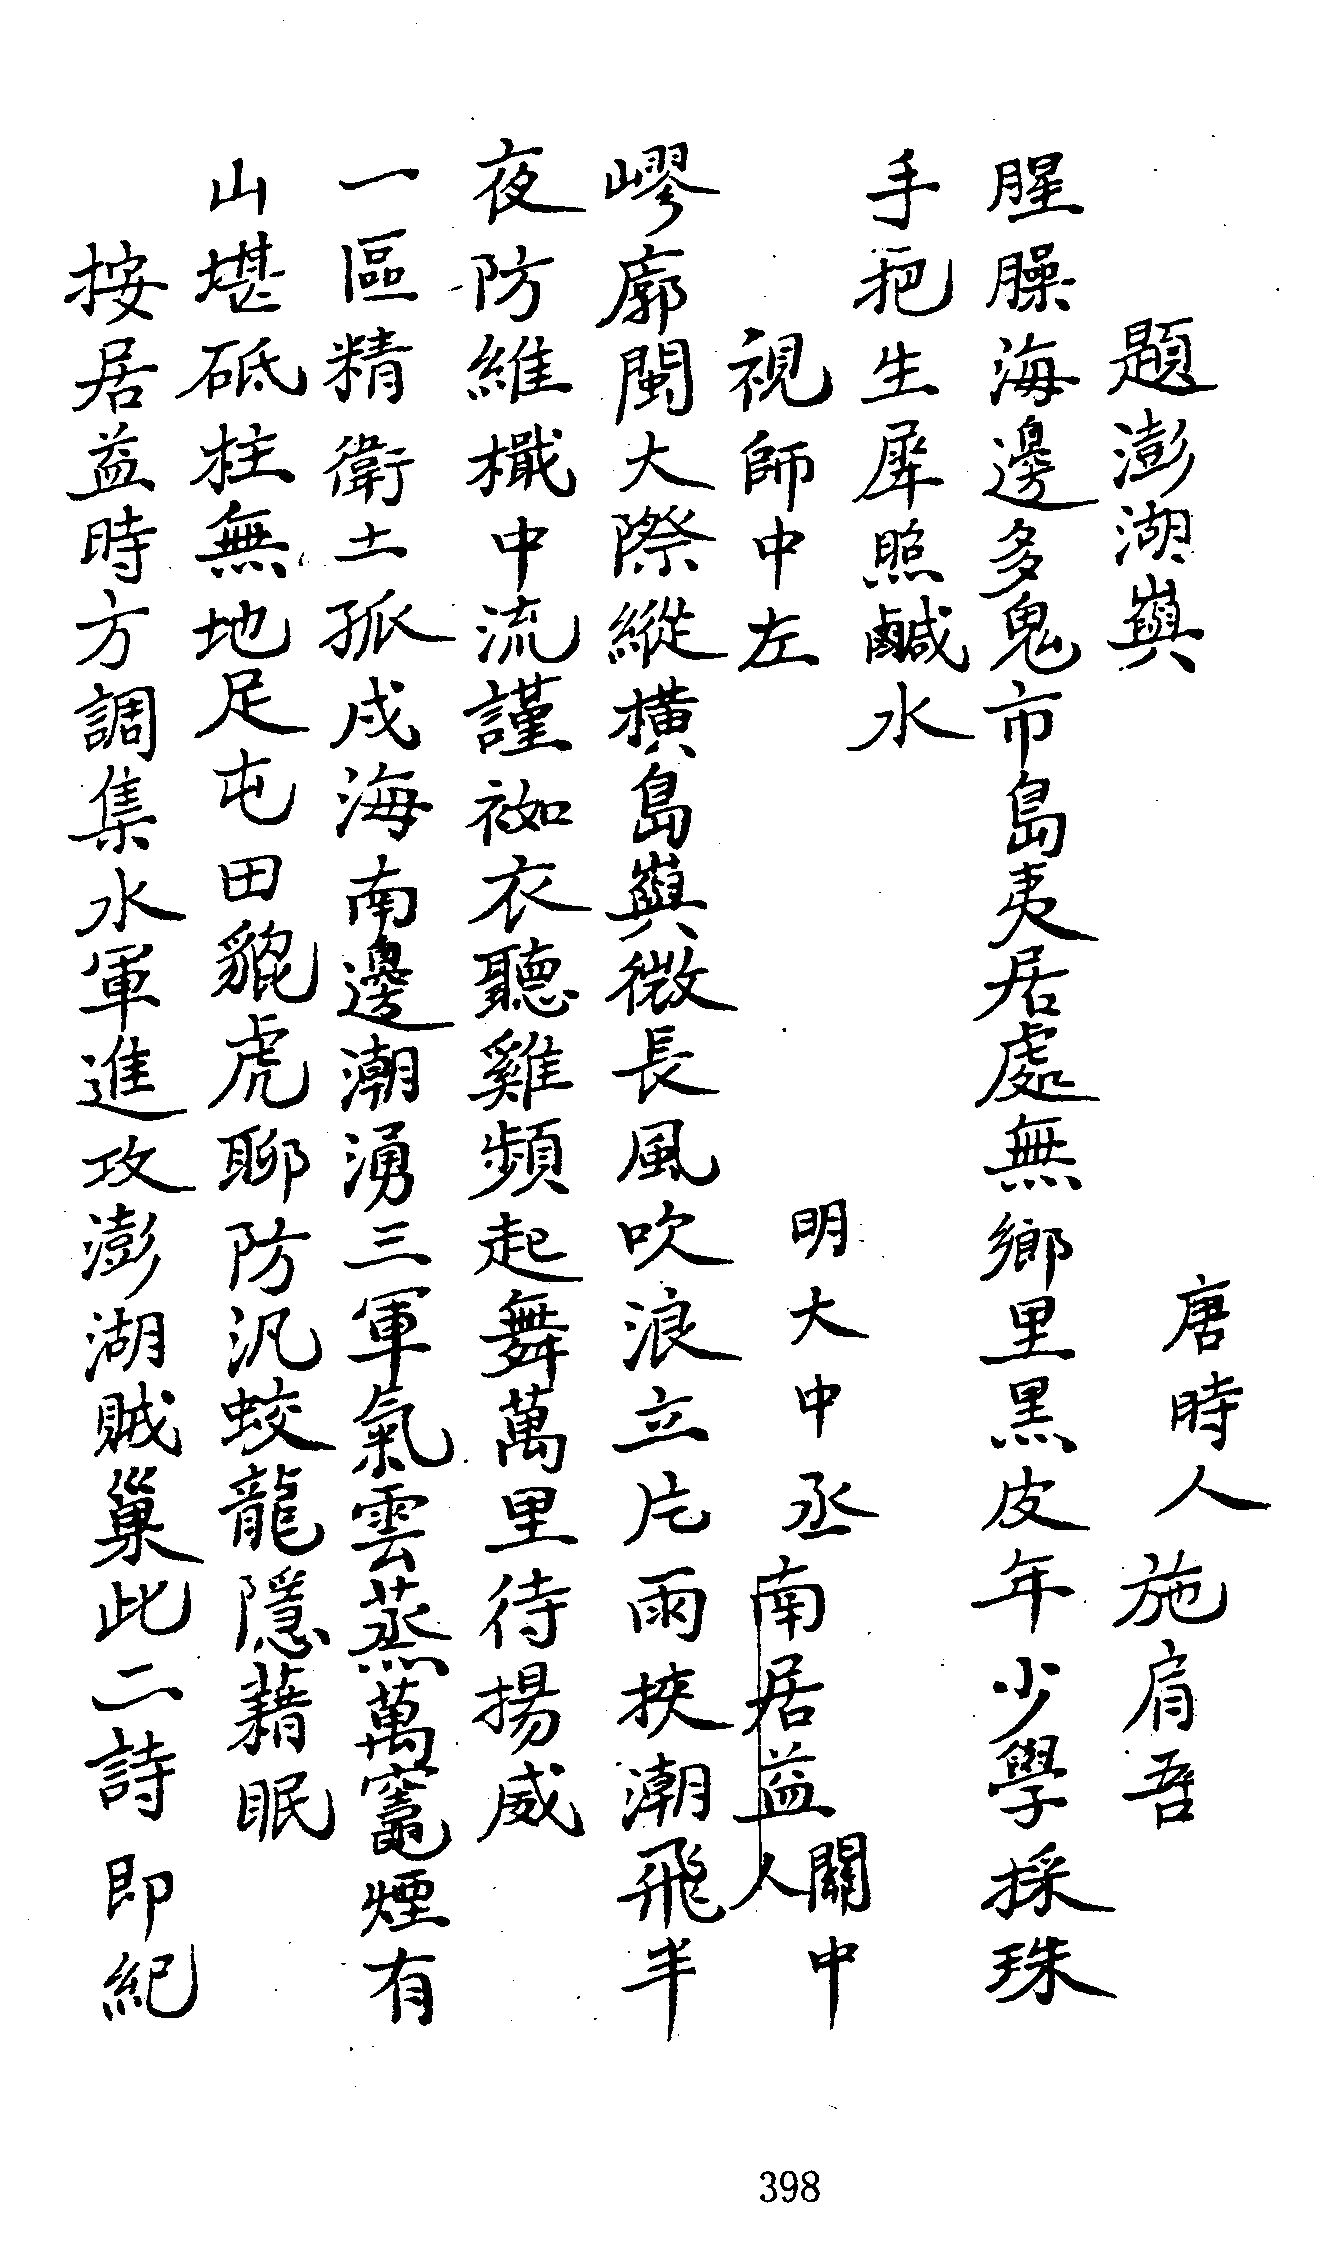 題澎湖嶼　唐時人施肩吾
腥臊海邊多鬼市島夷居處無鄉里黑皮年少學採珠
手把生犀照鹹水
視師中左　明大中丞南居益關中人
嵺廓閩大際縱橫島嶼微長風吹浪立片雨挾潮飛半
夜防維檝中流謹袽衣聽雞頻起舞萬里待揚威
一區精衛土孤戍海南邊潮湧三軍氣雲蒸萬竈煙有
山堪砥柱無地足屯田貔虎聊防汎蛟龍隱藉眠
按居益時方調集水軍進攻澎湖賊巢此二詩即紀
398